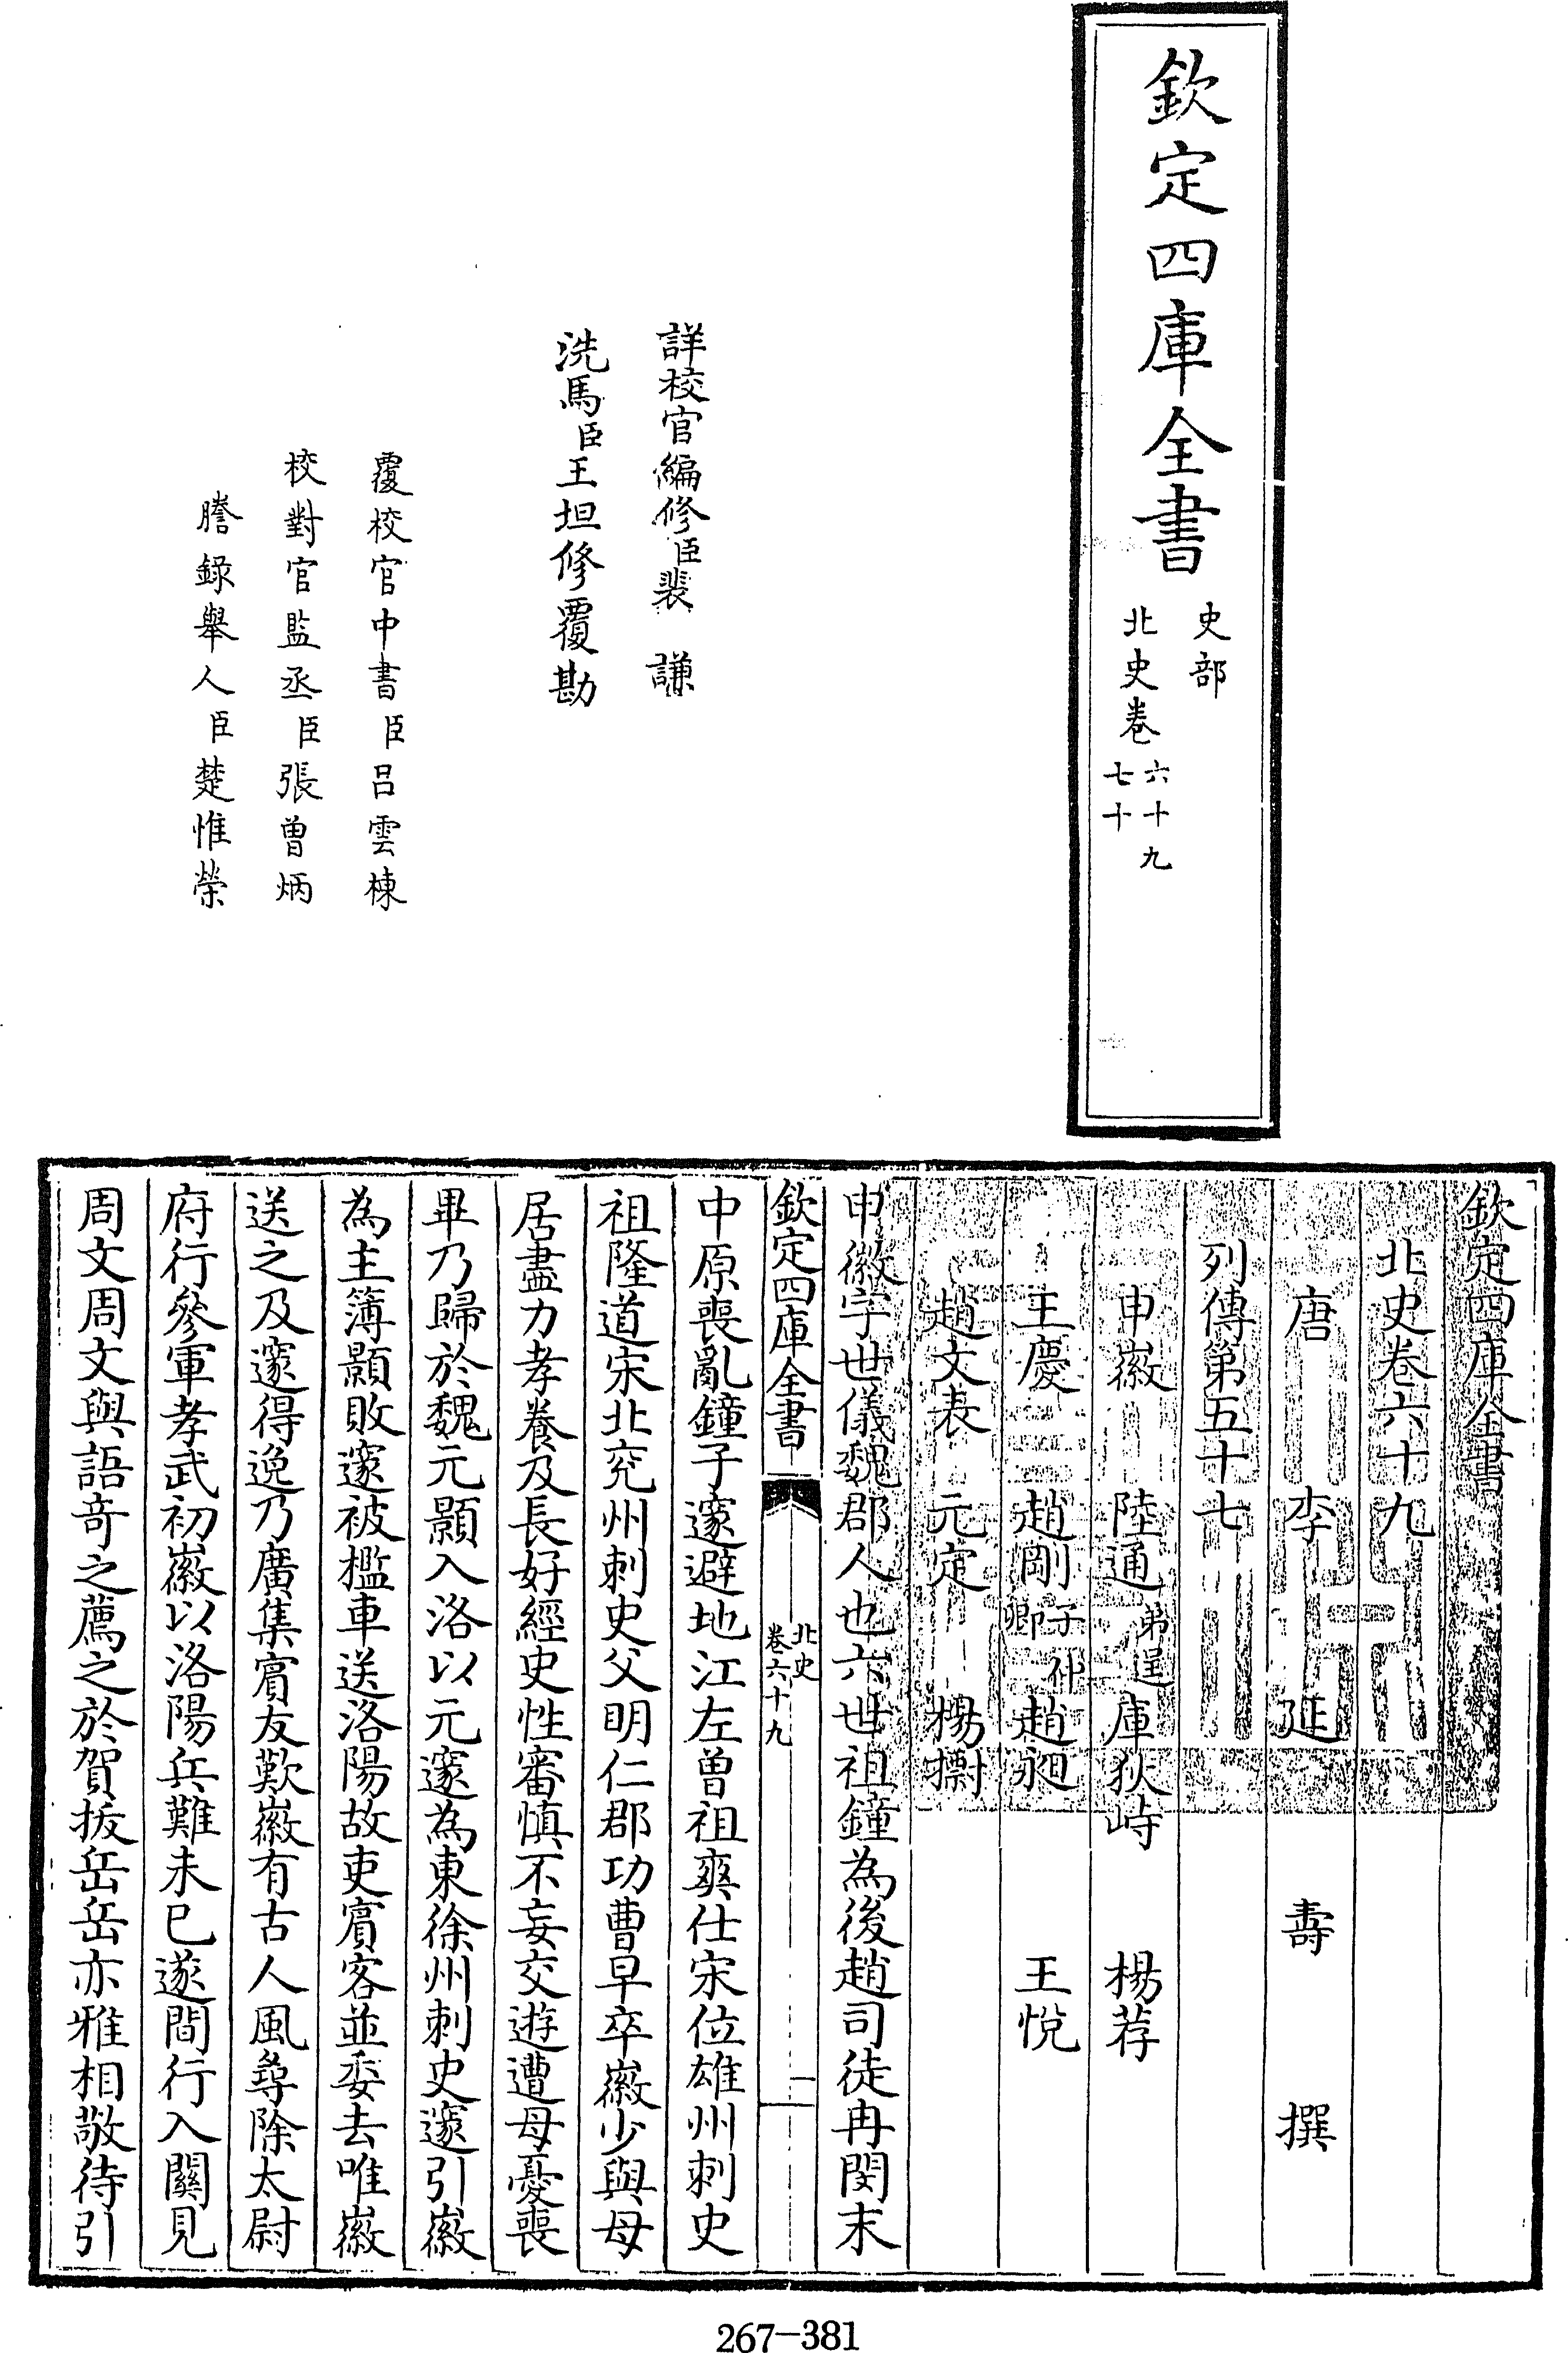 欽定四庫全書
史部
北史卷六十九
七十
詳校官編修臣裴謙
洗馬臣王坦修覆勘
覆校官中書臣呂雲棟
校對官監丞臣張曾炳
謄錄舉人臣楚惟榮
欽定四庫全書
北史卷六十九
唐李延壽撰
列傳第五十七
申徽 陸通弟逞 庫狄峙 楊荐
王慶 趙剛子仲卿 趙昶 王悅
趙文表 元定 楊㩲
申徽字世儀魏郡人也六世祖鐘為後趙司徒冉閔末
欽定四庫全書 北史卷六十九 一
中原喪亂鐘子邃避地江左曾祖爽仕宋位雄州刺史
祖隆道宋北兖州刺史父明仁郡功曹早卒徽少與母
居盡力孝養及長好經史性審慎不妄交遊遭母憂喪
畢乃歸於魏元顥入洛以元邃為東徐州刺史邃引徽
為主簿顥敗邃被檻車送洛陽故吏賓客並委去唯徽
送之及邃得逸乃廣集賓友歎徽有古人風尋除太尉
府行參軍孝武初徽以洛陽兵難未已遂間行入關見
周文周文與語竒之薦之於賀拔岳岳亦雅相敬待引
267-381